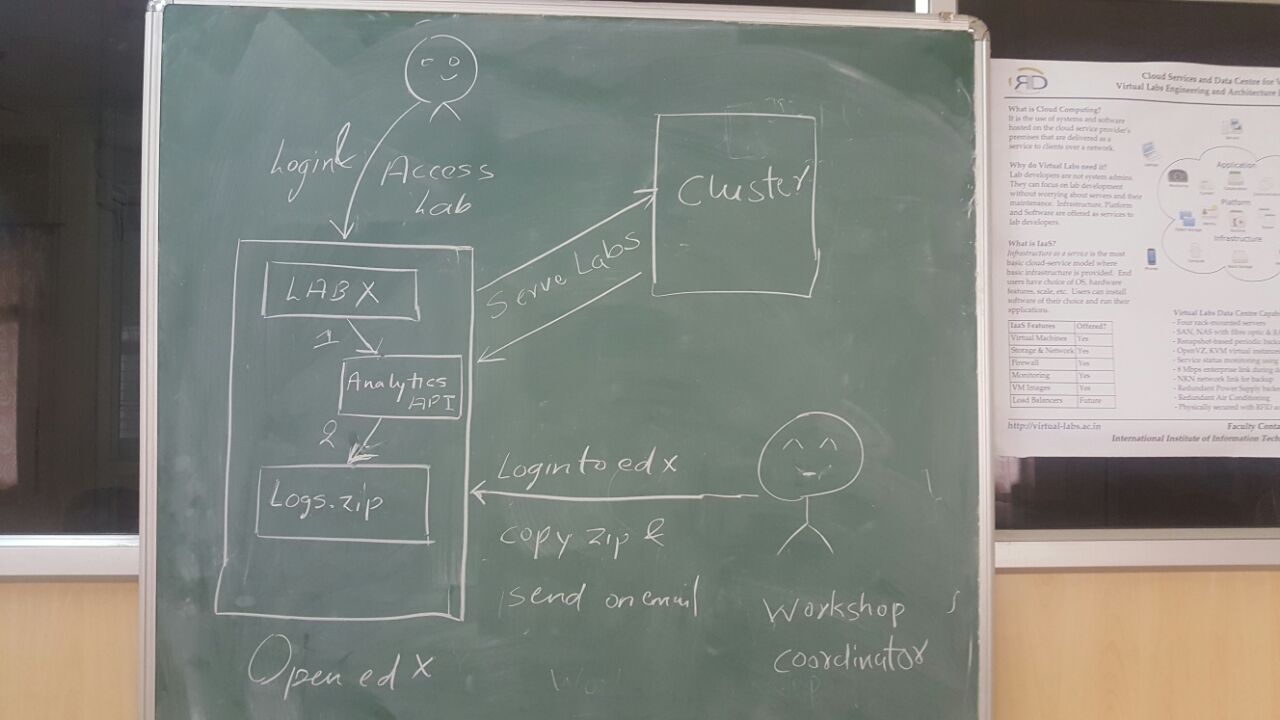 Login &
Access
Lab
Cluster
LAB X
Serve Labs
1
Analytics
API
2
Logs.zip
Login to edx
copy zip &
send on email
Workshop
coordinator
Open edx
Cloud Services and Data Centre for
Virtual Labs Engineering and Architecture
What is Cloud Computing?
It is the use of systems and software
hosted on the cloud service provider's
premises that are delivered as a
service to clients over a network.
Why do Virtual Labs need it?
Lab developers are not system admins.
They can focus on lab development
without worrying about servers and their
maintenance. Infrastructure, Platform
and Software are offered as services to
lab developers.
What is IaaS?
Infrastructure as a service is the most
basic cloud-service model where
basic infrastructure is provided. End
users have choice of OS, hardware
features, scale, etc. Users can install
software of their choice and run their
applications.
IaaS Features Offered?
Virtual Machines Yes
Storage & Network Yes
Firewall Yes
Monitoring Yes
VM Images Yes
Load Balancers Future
Application
Platform
Infrastructure
Virtual Labs Data Centre
- Four rack-mounted servers
- SAN, NAS with fibre optic &
- Rsnapshot-based periodic
- OpenVZ, KVM virtual
- Service status monitoring using
- 8 Mbps enterprise link during
- NKN network link for backup
- Redundant Power Supply
- Redundant Air Conditioning
- Physically secured with RFID
http://virtual-labs.ac.in
Faculty
International Institute of Information